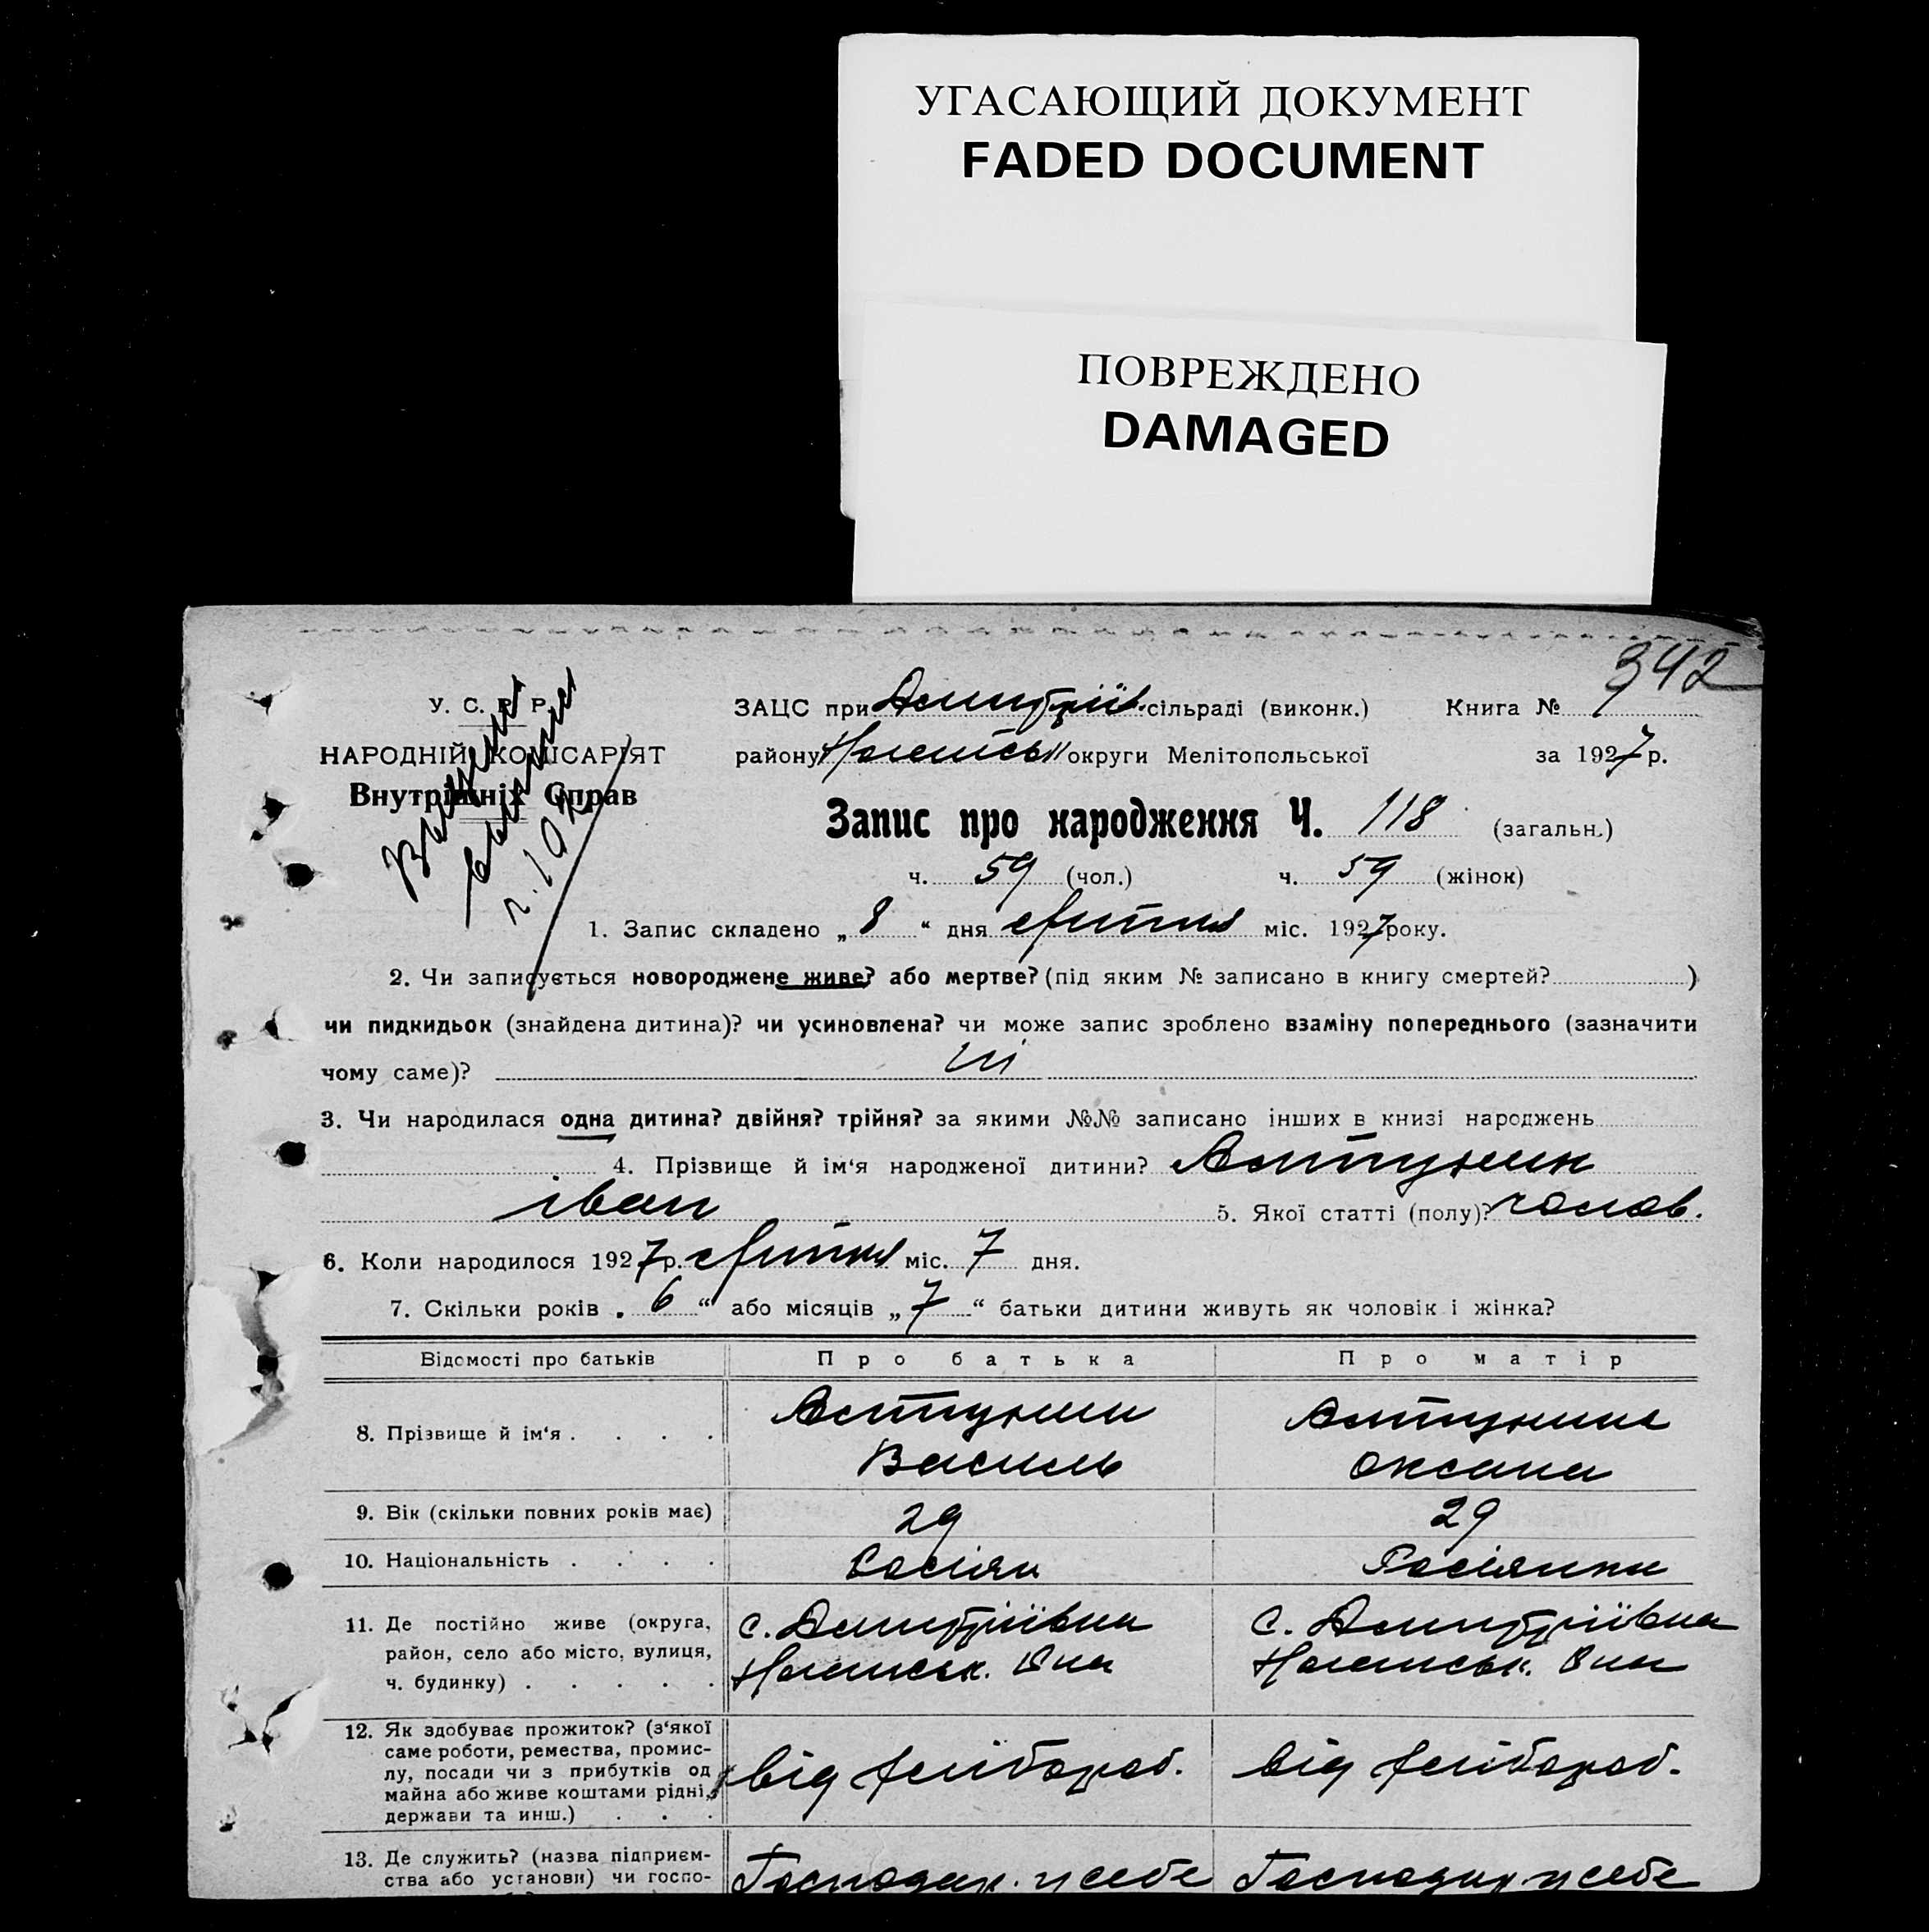 УГАСАЮЩИЙ ДОКУМЕНТ
FADED DOCUMENT
ПОВРЕЖДЕНО
DAMAGED
342
У. С. Р. Р.
НАРОДНІЙ КОМІСАРІЯТ
Внутрішніх Справ
ЗАЦС при Дмитріїв. сільраді (виконк.) Книга №
району Ногайськ округи Мелітопольської за 1927 р.
Запис про народження Ч. 118 (загальн.)
ч. 59 (чол.) ч. 59 (жінок)
1. Запис складено „ 8 “ дня квітня міс. 1927 року.
2. Чи записується новороджене живе? або мертве? (під яким № записано в книгу смертей? )
чи пидкидьок (знайдена дитина)? чи усиновлена? чи може запис зроблено взаміну попереднього (зазначити
чому саме)? ні
3. Чи народилася одна дитина? двійня? трійня? за якими №№ записано інших в книзі народжень
4. Прізвище й ім‘я народженої дитини?
Іван 5. Якої статті (полу)? чолов.
6. Коли народилося 1927 р. квітня міс. 7 дня.
7. Скільки років „ 6 “ або місяців „ 7 “ батьки дитини живуть як чоловік і жінка?
Відомості про батьків Про батька Про матір
8. Прізвище й ім‘я . . . .
Василь Оксана
9. Вік (скільки повних років має) 29 29
10. Національність . . . . Росіян Росіянка
11. Де постійно живе (округа, с. Дмитріївка с. Дмитріївка
район, село або місто, вулиця, Ногайськ. Р-на Ногайськ. Р-на
ч. будинку) . . . . .
12. Як здобуває прожиток? (з‘якої
саме роботи, ремества, промис-
лу, посади чи з прибутків од від хлібороб. від хлібороб.
майна або живе коштами рідні,
держави та инш.) . . .
13. Де служить? (назва підприєм-
ства або установи) чи госпо- Господар. у себе Господар. у себе